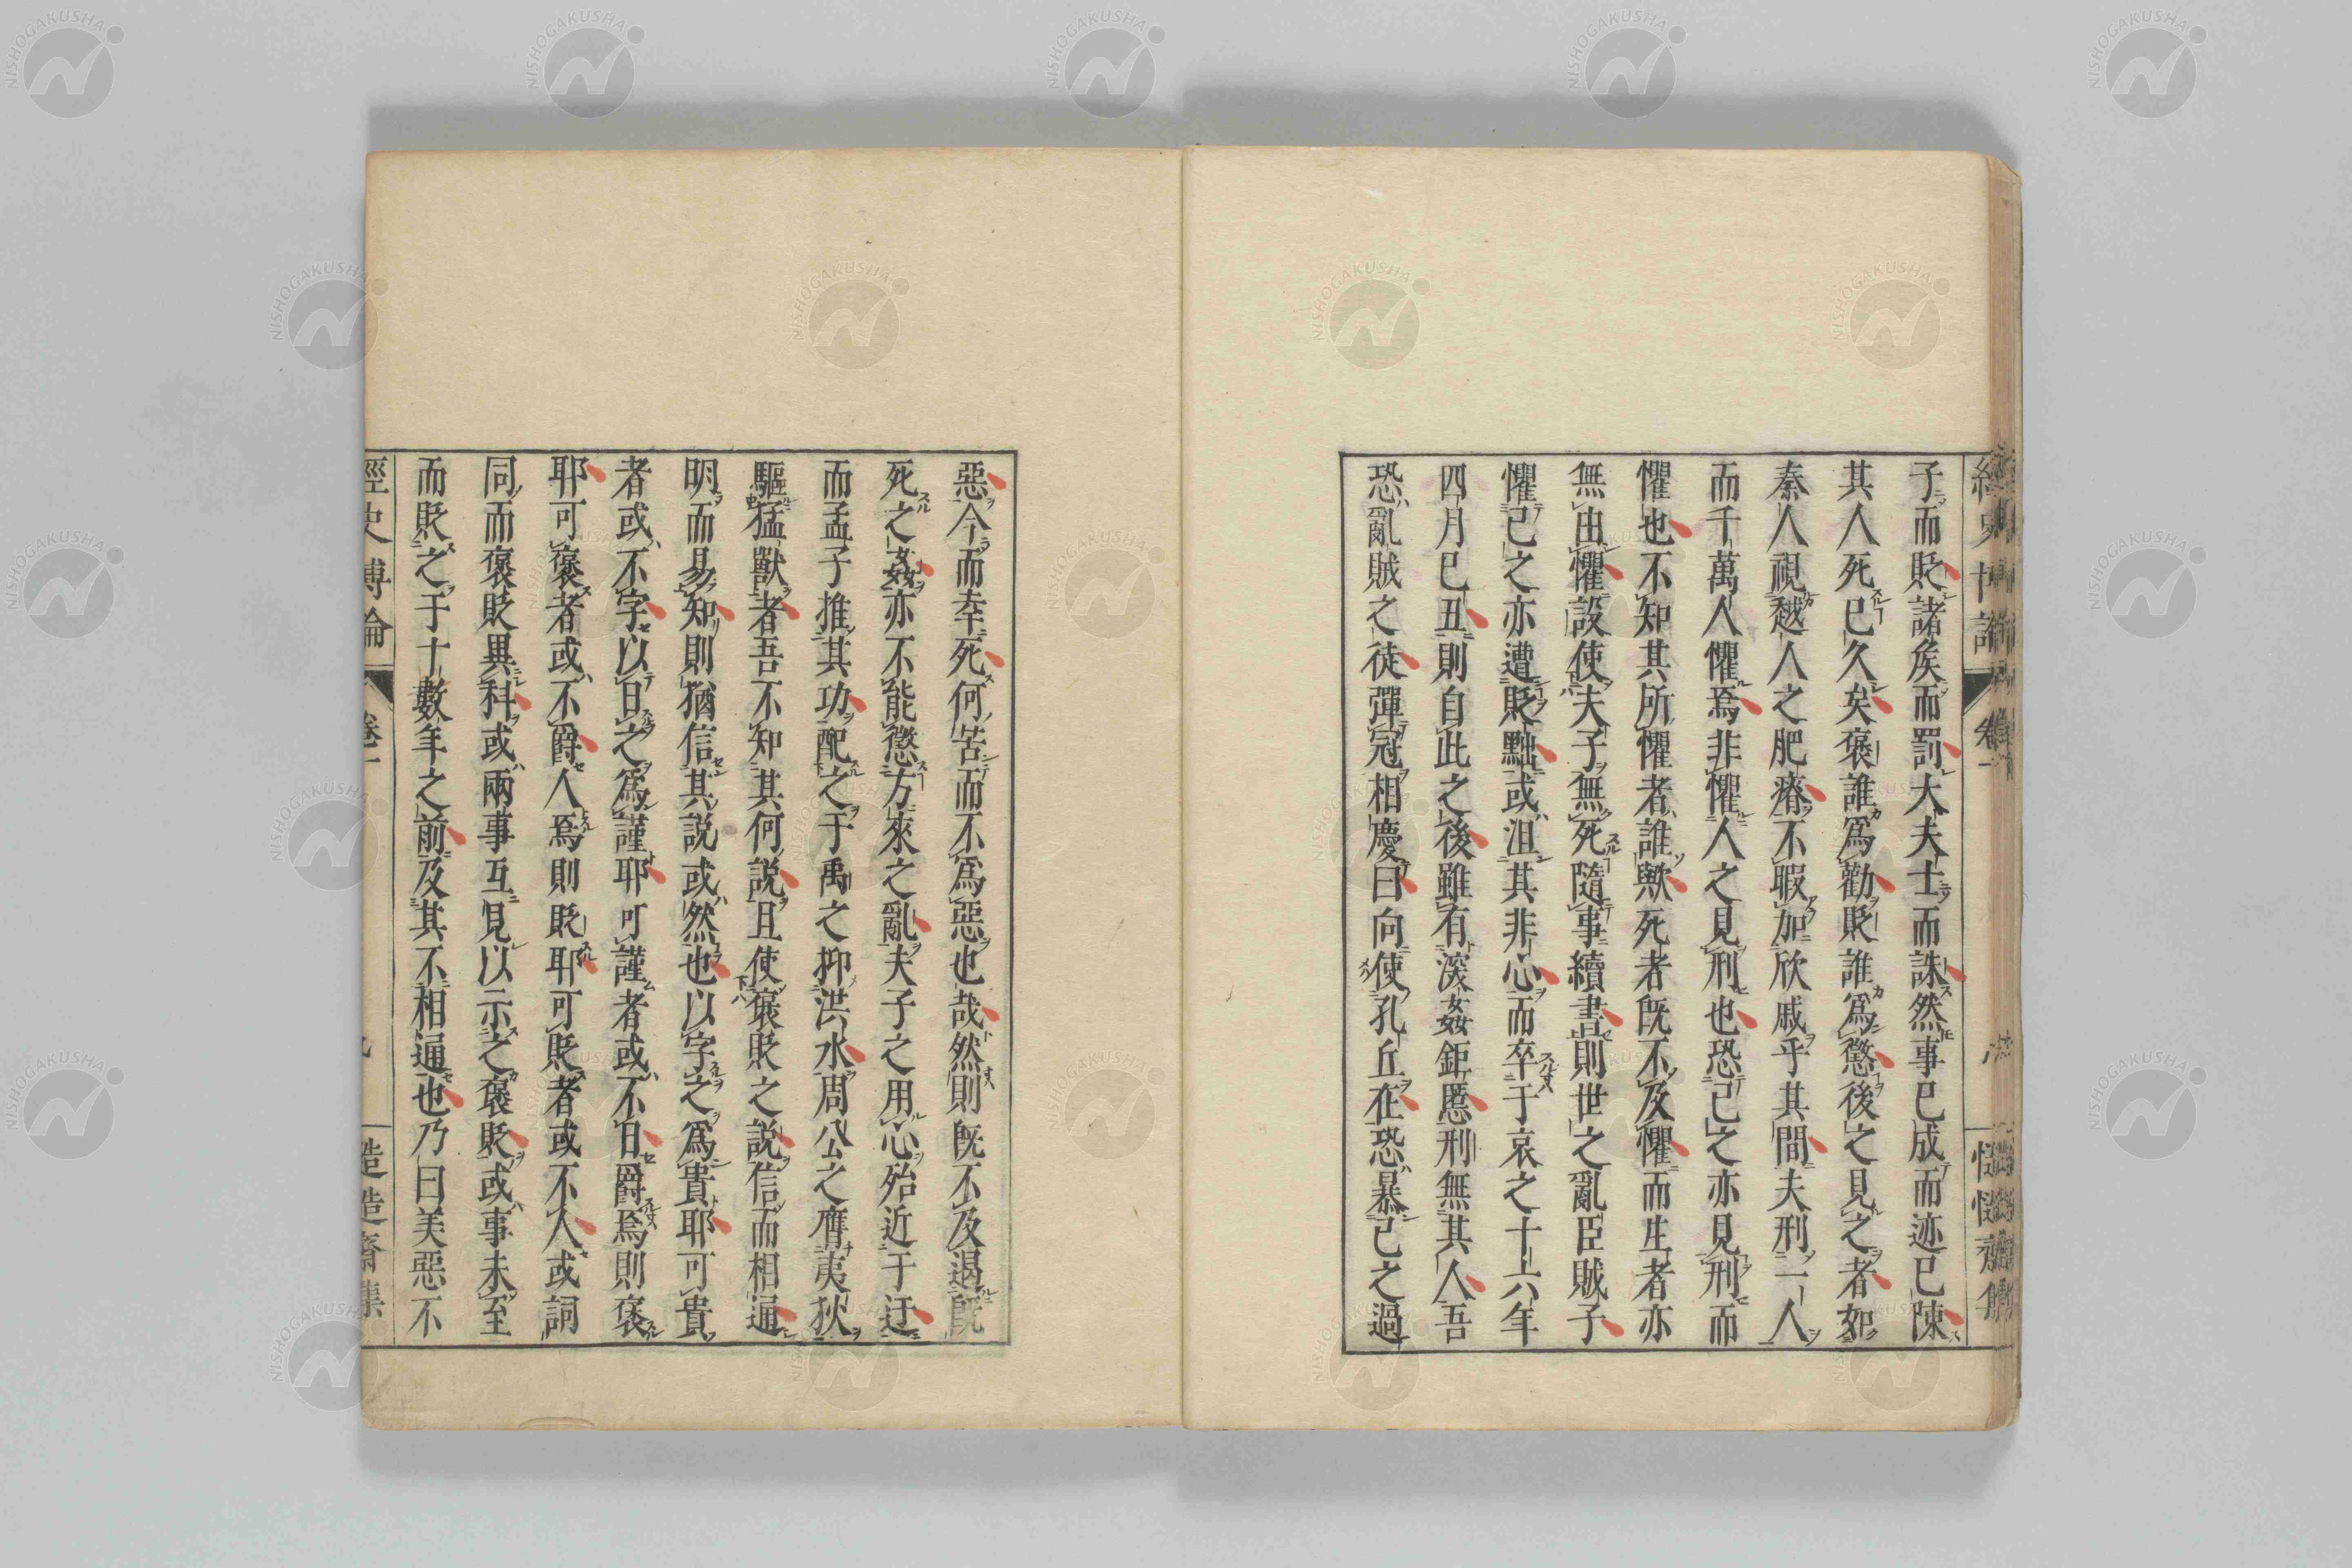 子而貶諸矦而罰大夫士而誅然事已成而迹已陳
其人死已久矣褒誰爲勸貶誰爲懲後之見之者如
秦人視越人之肥瘠不暇加欣戚乎其間夫刑一人
而千萬人懼焉非懼人之見刑也恐己之亦見刑而
懼也不知其所懼者誰歟死者旣不及懼而生者亦
無由懼設使夫子無死隨事續書則世之亂臣賊子
懼己之亦遭貶黜或沮其非心而卒于哀之十六年
四月己丑則自此之後雖有深姦鉅慝刑無其人吾
恐亂賊之徒彈冠相慶曰向使孔丘在恐暴己之過
惡今而幸死何苦而不爲惡也哉然則旣不及遏旣
死之姦亦不能懲方來之亂夫子之用心殆近于迂
而孟子推其功配之于禹之抑洪水周公之膺夷狄
驅猛獸者吾不知其何說且使褒貶之說信而相通
明而易知則猶信其說或然也以字之爲貴耶可貴
者或不字以日之爲謹耶可謹者或不日爵焉則褒
耶可褒者或不爵人焉則貶耶可貶者或不人或詞
同而褒貶異科或兩事互見以示之褒貶或事未至
而貶之于十數年之前及其不相通也乃曰美惡不
經史博論
卷一